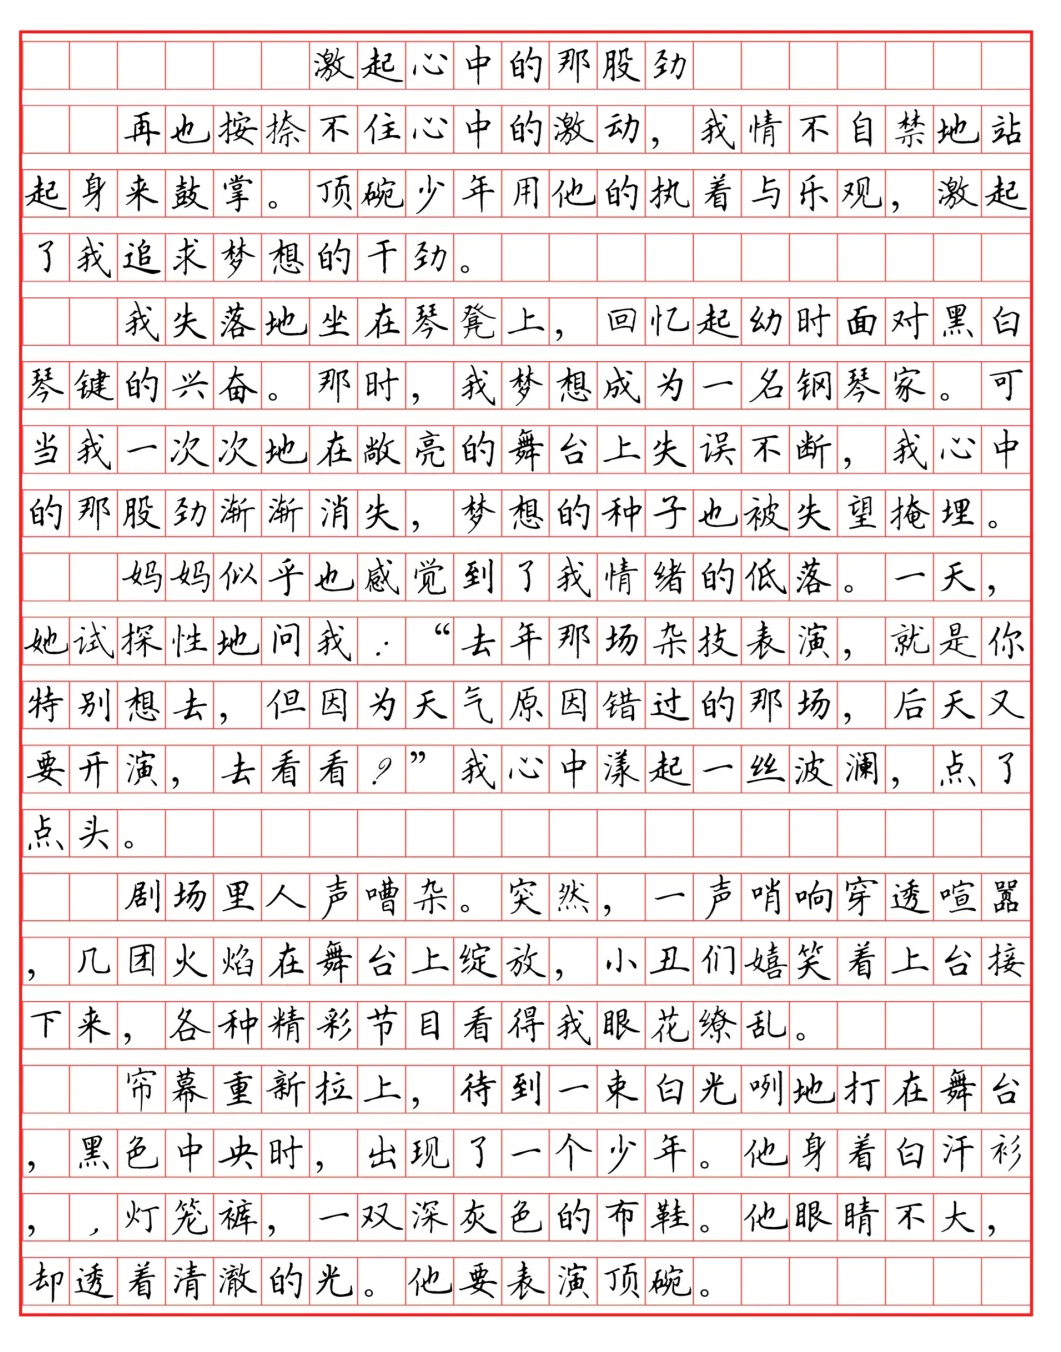 激起心中的那股劲
再也按捺不住心中的激动，我情不自禁地站
起身来鼓掌。顶碗少年用他的执着与乐观，激起
了我追求梦想的干劲。
我失落地坐在琴凳上，回忆起幼时面对黑白
琴键的兴奋。那时，我梦想成为一名钢琴家。可
当我一次次地在敞亮的舞台上失误不断，我心中
的那股劲渐渐消失，梦想的种子也被失望掩埋。
妈妈似乎也感觉到了我情绪的低落。一天，
她试探性地问我：“去年那场杂技表演，就是你
特别想去，但因为天气原因错过的那场，后天又
要开演，去看看？”我心中漾起一丝波澜，点了
点头。
剧场里人声嘈杂。突然，一声哨响穿透喧嚣
，几团火焰在舞台上绽放，小丑们嬉笑着上台接
下来，各种精彩节目看得我眼花缭乱。
帘幕重新拉上，待到一束白光咧地打在舞台
，黑色中央时，出现了一个少年。他身着白汗衫
，，灯笼裤，一双深灰色的布鞋。他眼睛不大，
却透着清澈的光。他要表演顶碗。